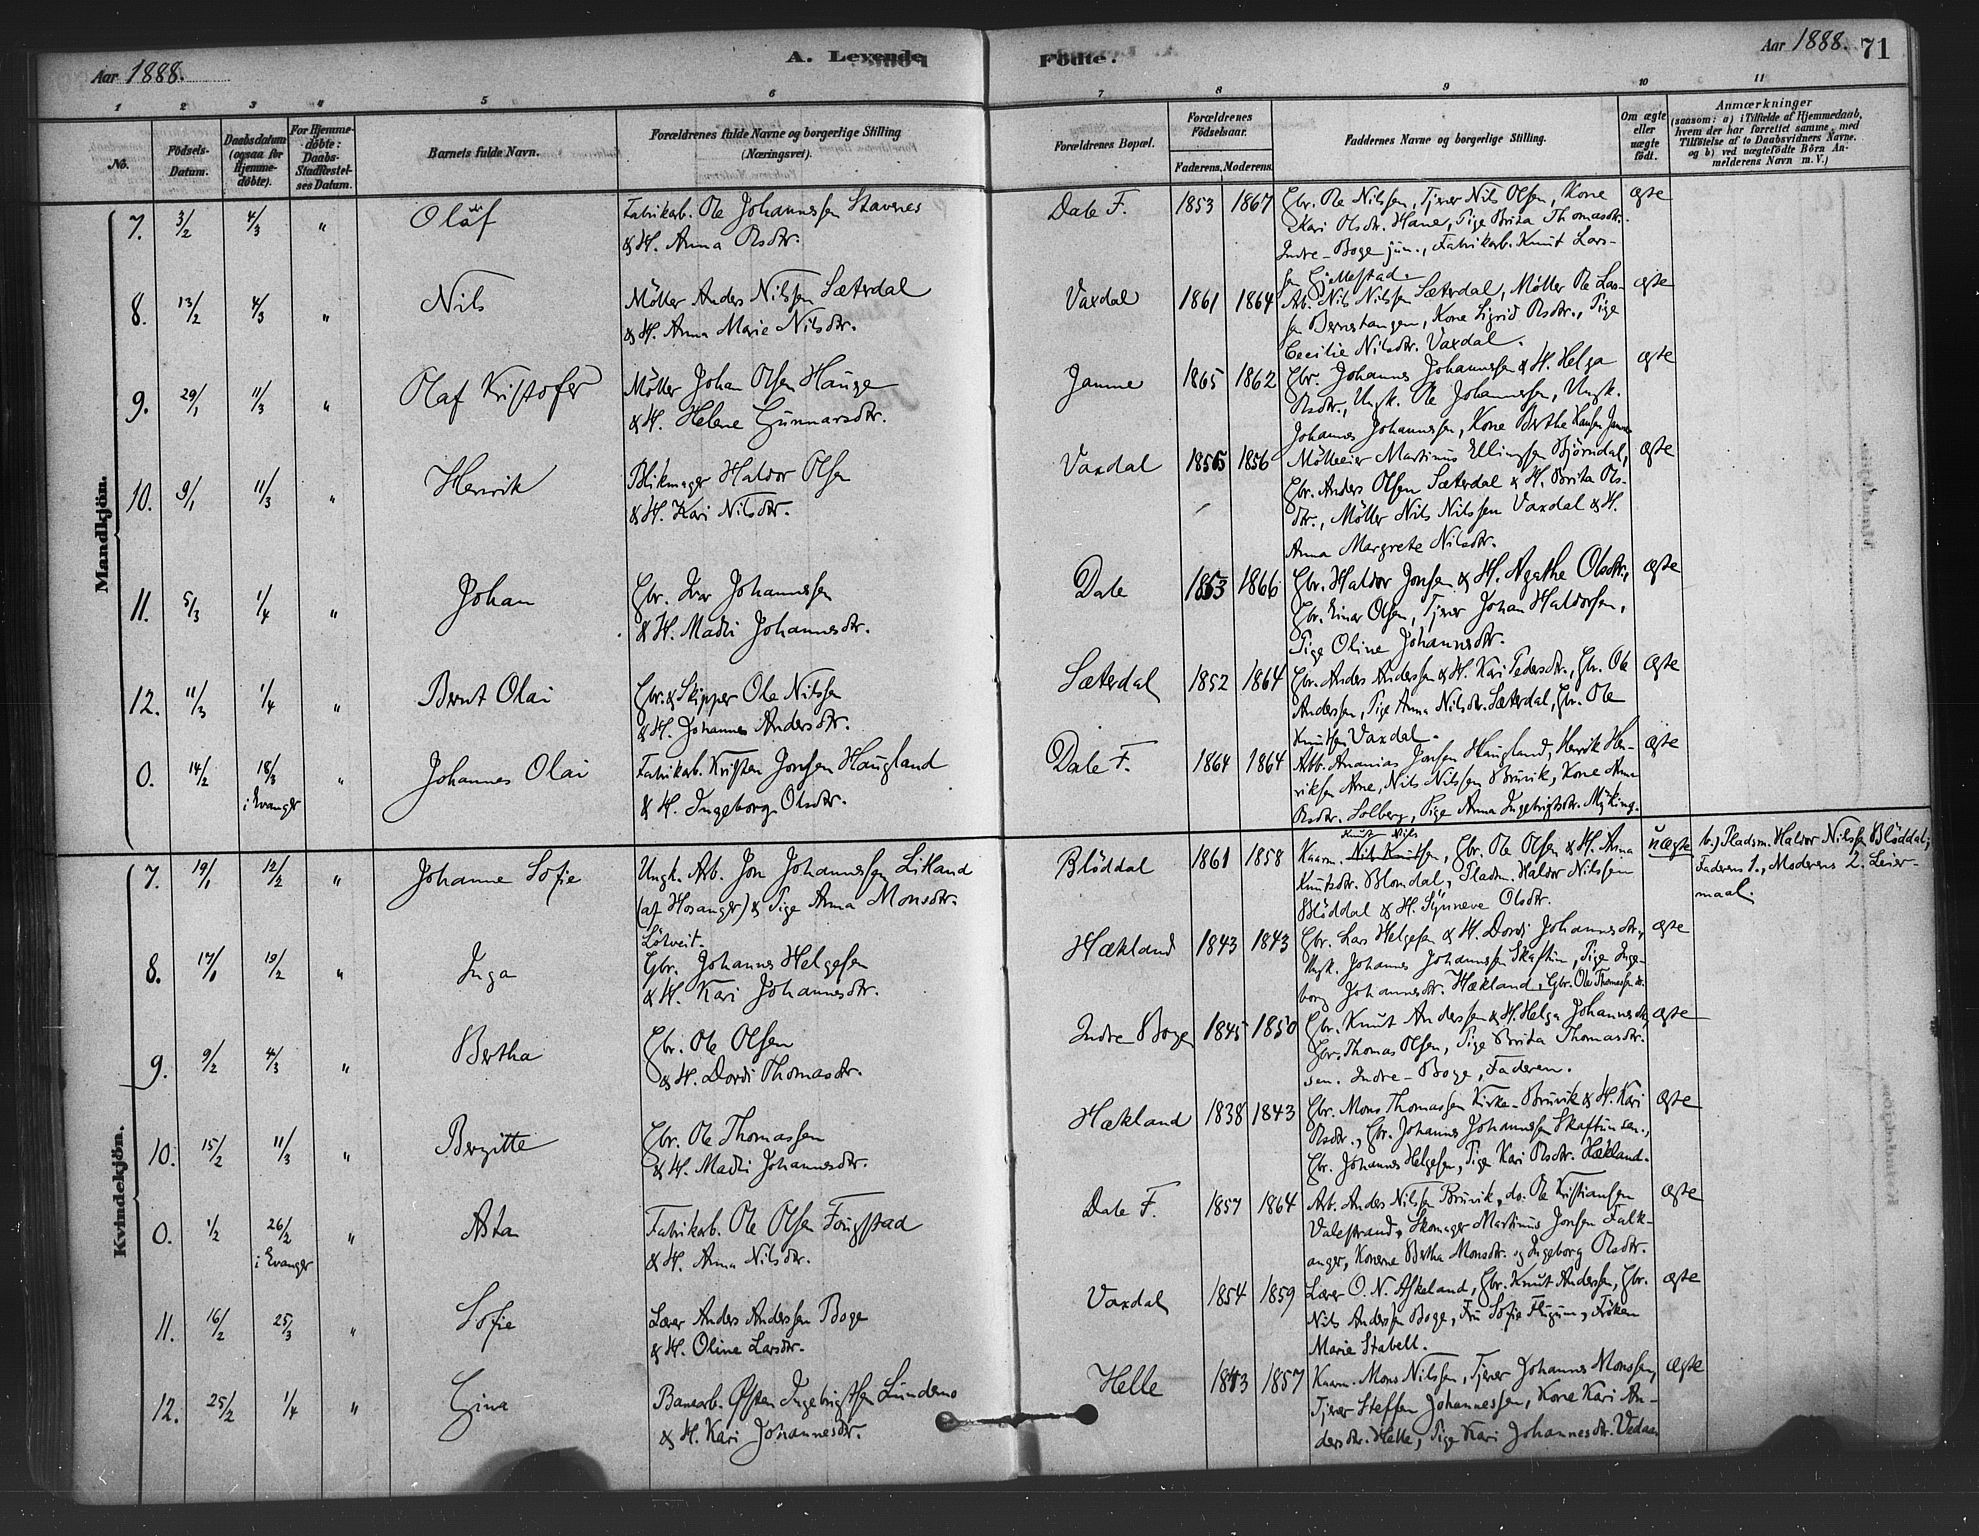 Aar 1888.
A. Levende
Födte.
Aar 1888. 71
1 2 3 4 5 6 7 8 9 10 11
No.
Födsels-Datum.
Daabsdatum (ogsaa for Hjemme-döbte).
For Hjemme-döbte: Daabs-Stadfæstel-ses Datum.
Barnets fulde Navn.
Forældrenes fulde Navne og borgerlige Stilling (Næringsvei).
Forældrenes Bopæl.
Forældrenes Födselsaar.
Faderens. Moderens.
Faddernes Navne og borgerlige Stilling.
Om ægte eller uægte födt.
Anmærkninger
(saasom: a) i Tilfælde af Hjemmedaab,
hvem der har forrettet samme, med
Tilföielse af to Daabsvidners Navne.
og b) ved uægtefödte Börn An-
melderens Navn m. V.)
Mandkjön.
7. 3/2 4/3 " Olaf
Fabrikarb. Ole Johannessen Stavenes
& H. Anna Olsdtr.
Dale F. 1853 1867
Gbr. Ole Nilssen, Tjener Nils Olsen, Kone
Kari Olsdtr. Hane, Pige Brita Thomasdtr.
Indre-Boge jun., Fabrikarb. Knut Lars-
sen Gjellestad.
ægte
8. 13/2 4/3 " Nils
Möller Anders Nilssen Sæterdal
& H. Anna Marie Nilsdtr.
Vaxdal 1861 1864
Arb. Nils Nilssen Sæterdal, Möller Ole Lar-
sen Bernestangen, Kone Sigrid Olsdtr., Pige
Cecilie Nilsdtr. Vaxdal.
ægte
9. 29/1 11/3 " Olaf Kristofer
Möller Johan Olsen Hauge
& H. Helene Gunnarsdtr.
Jamne 1865 1862
Gbr. Johannes Johannessen & H. Helga
Olsdtr., Ungk. Ole Johannessen, Ungk.
Johannes Johannessen, Kone Berthe Hansen Jamne
ægte
10. 9/1 11/3 " Henrik
Blikmager Haldor Olsen
& H. Kari Nilsdtr.
Vaxdal 1855 1856
Mölleeier Martinus Ellingsen Björndal,
Gbr. Anders Olsen Sæterdal & H. Brita Ols-
dtr., Möller Nils Nilssen Vaxdal & H.
Anna Margrete Nilsdtr.
ægte
11. 5/3 1/4 " Johan
Gbr. Ivar Johannessen
& H. Madli Johannesdtr.
Dale 1853 1866
Gbr. Haldor Jonsen & H. Agathe Olsdtr.,
Gbr. Einar Olsen, Tjener Johan Haldorsen,
Pige Oline Johannesdtr.
ægte
12. 11/3 1/4 " Bernt Olai
Gbr. & Skipper Ole Nilssen
& H. Johannes Andersdtr.
Sæterdal 1852 1864
Gbr. Anders Andersen & H. Kari Pedersdtr., Gbr. Ole
Andersen, Pige Anna Nilsdtr. Sæterdal, Gbr. Ole
Knutsen Vaxdal.
ægte
0. 14/2 18/3 i Evanger " Johannes Olai
Fabrikarb. Kristen Jonsen Haugland
& H. Ingeborg Olsdtr.
Dale F. 1864 1864
Arb. Ananias Jonsen Haugland, Henrik Hen-
riksen Arne, Nils Nilssen Bruvik, Kone Anna
Olsdtr. Solberg, Pige Anna Ingebrigtsdtr. Myking.
ægte
Kvindekjön.
7. 19/1 12/2 " Johanne Sofie
Ungk. Arb. Jon Johannessen Litland
(af Hosanger) & Pige Anna Monsdtr.
Lötveit.
Blöddal 1861 1858
Kaarm. Knut Nilssen, Gbr. Ole Olsen & H. Anna
Knutsdtr. Blomdal, Pladsm. Haldor Nilssen
Blöddal & H. Synneve Olsdtr.
uægte
b.) Pladsm. Haldor Nilssen Blöddal;
Faderens 1., Moderens 2. Leier-
maal.
8. 17/1 19/2 " Inga
Gbr. Johannes Helgesen
& H. Kari Johannesdtr.
Hækland 1843 1843
Gbr. Lars Helgesen & H. Dordi Johannesdtr.,
Ungk. Johannes Johannessen Skaftun, Pige Inge-
borg Johannesdtr. Hækland, Gbr. Ole Thomassen ib.
ægte
9. 9/2 4/3 " Bertha
Gbr. Ole Olsen
& H. Dordi Thomasdtr.
Indre Boge 1845 1850
Gbr. Knut Andersen & H. Helga Johannesdtr.,
Gbr. Thomas Olsen, Pige Brita Thomasdtr.
sen. Indre-Boge, Faderen.
ægte
10. 15/2 11/3 " Bergitte
Gbr. Ole Thomassen
& H. Madli Johannesdtr.
Hækland 1838 1843
Gbr. Mons Thomassen Kirke-Bruvik & H. Kari
Olsdtr., Gbr. Johannes Johannessen Skaftun sen.,
Gbr. Johannes Helgesen, Pige Kari Olsdtr. Hækland.
ægte
0. 1/2 26/2 i Evanger " Asta
Fabrikarb. Ole Olsen Fougstad
& H. Anna Nilsdtr.
Dale F. 1857 1864
Arb. Anders Nilssen Bruvik, do. Ole Kristiansen
Valestrand, Skomager Martinus Jonsen Falk-
anger, Konerne Bertha Monsdtr. og Ingeborg Olsdtr.
ægte
11. 16/2 25/3 " Sofie
Lærer Anders Andersen Boge
& H. Oline Larsdtr.
Vaxdal 1854 1859
Lærer O. N. Askeland, Gbr. Knut Andersen, Gbr.
Nils Andersen Boge, Fru Sofie Flugum, Fröken
Marie Stabell.
ægte
12. 25/2 1/4 " Gina
Banearb. Östen Ingebrigtsen Lundemo
& H. Kari Johannesdtr.
Helle 1853 1857
Kaarm. Mons Nilssen, Tjener Johannes Monssen,
Tjener Steffen Johannessen, Kone Kari An-
dersdtr. Helle, Pige Kari Johannesdtr. Vedaa
ægte